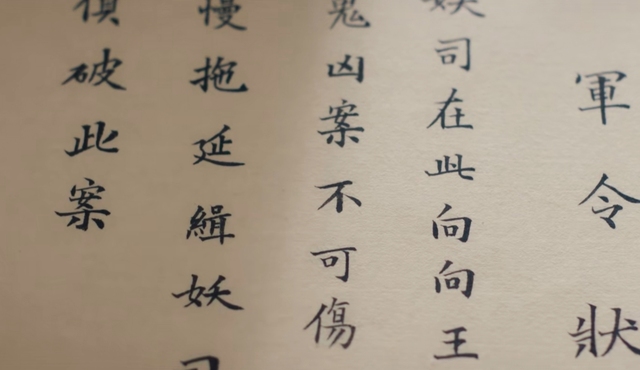 軍令狀
妖司在此向向王
鬼凶案不可傷
慢拖延緝妖司
偵破此案